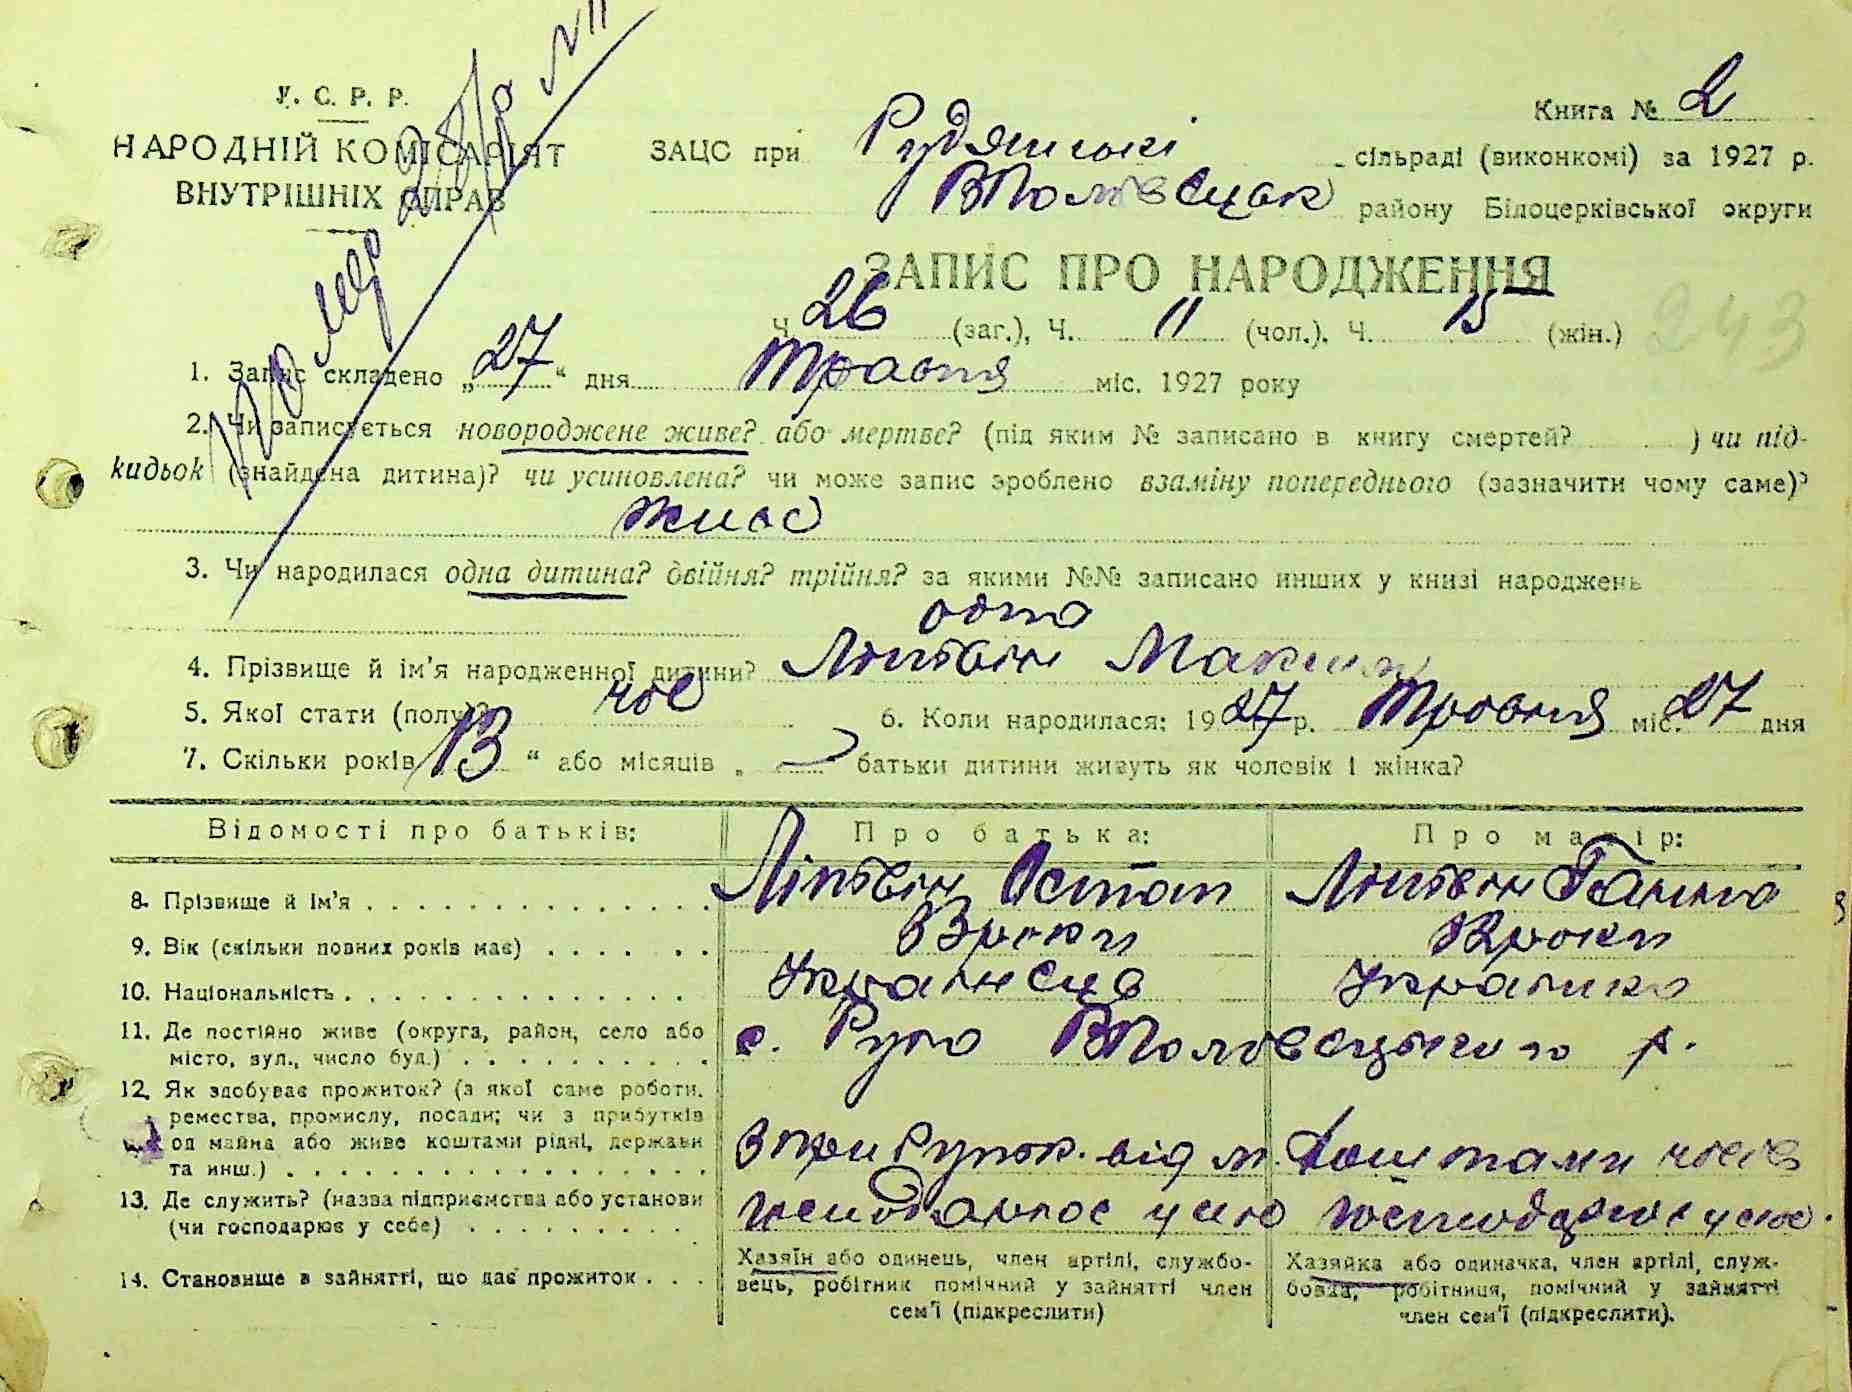 У. С. Р. Р.
НАРОДНІЙ КОМІСАРІЯТ
ВНУТРІШНІХ СПРАВ
Книга № 2
ЗАЦС при Рудянські сільраді (виконкомі) за 1927 р.
району Білоцерківської округи
ЗАПИС ПРО НАРОДЖЕННЯ
Ч. 26 (заг.), Ч. 11 (чол.), Ч. 15 (жін.) 243
1. Запис складено „27“ дня травня міс. 1927 року
2. Чи записується новороджене живе? або мертве? (під яким № записано в книгу смертей? ) чи під-
кидьок (знайдена дитина)? чи усиновлена? чи може запис зроблено взаміну попереднього (зазначити чому саме)?
живе
3. Чи народилася одна дитина? двійня? трійня? за якими №№ записано инших у книзі народжень
одна
4. Прізвище й ім’я народженної дитини? Літвін Максим
5. Якої стати (полу)? чол 6. Коли народилася: 1927 р. Травня міс. 27 дня
7. Скільки років 13 “ або місяців „ батьки дитини живуть як чоловік і жінка?
Відомості про батьків: Про батька: Про матір:
8. Прізвище й ім’я Літвін Остап Літвін Ганна
9. Вік (скільки повних років має) роки роки
10. Національність Українець Українка
11. Де постійно живе (округа, район, село або
місто, вул., число буд.) с. Руда р.
12. Як здобуває прожиток? (з якої саме роботи,
ремества, промислу, посади; чи з прибутків
од майна або живе коштами рідні, держави
та инш.) від коштами
13. Де служить? (назва підприємства або установи
(чи господарює у себе) господарює у себе господарює у себе
14. Становище в зайнятті, що дає прожиток
Хазяїн або одинець, член артілі, службо-
вець, робітник помічний у зайнятті член
сем’ї (підкреслити)
Хазяйка або одиначка, член артілі, служ-
бовка, робітниця, помічний у зайнятті
член сем’ї (підкреслити).